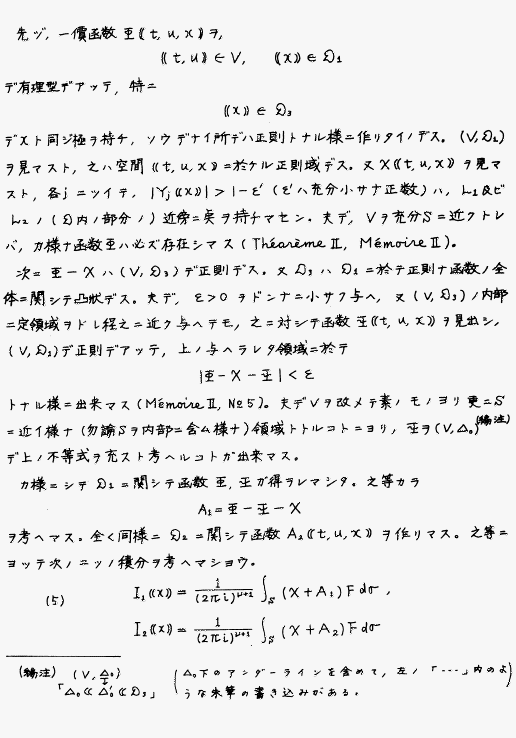 先ヅ, 一價函数 Φ((t, u, x)) ヲ,
((t, u)) ∈ V, ((x)) ∈ 𝔇₁
デ有理型デアッテ, 特ニ
((x)) ∈ 𝔇₃
デ X ト同ジ極ヲ持チ, ソウデナイ所デハ正則トナル様ニ作リタイノデス。(V, 𝔇₁)
ヲ見マスト, 之ハ空間 ((t, u, x)) ニ於ケル正則域デス。又 X((t, u, x)) ヲ見マ
スト, 各 j ニツイテ, |Yj((x))| > 1-ε' (ε' ハ充分小サナ正数) ハ, L₁ 及ビ
L₂ ノ (𝔇内ノ部分ノ) 近傍ニ実ヲ持チマセン。夫デ, V ヲ充分 S ニ近クトレ
バ, カ様ナ函数 Φ ハ必ズ存在シマス (Théorème II, Mémoire II)。
次ニ Φ-X ハ (V, 𝔇₃) デ正則デス。又 𝔇₃ ハ 𝔇₁ ニ於テ正則ナ函数ノ全
体ニ関シテ凸状デス。夫デ, ε>0 ヲドンナニ小サク与ヘ, 又 (V, 𝔇₃) ノ内部
ニ定領域ヲドレ程之ニ近ク与ヘテモ, 之ニ対シテ函数 Ψ((t, u, x)) ヲ見出シ,
(V, 𝔇₁) デ正則デアッテ, 上ノ与ヘラレタ領域ニ於テ
|Φ-X-Ψ|<ε
トナル様ニ出来マス (Mémoire II, №5)。夫デ V ヲ改メテ素ノモノヨリ更ニ S
ニ近イ様ナ (勿論 S ヲ内部ニ含ム様ナ) 領域トトルコトニヨリ, Ψ ヲ (V, Δ₀)(編注)
デ上ノ不等式ヲ充スト考ヘルコトガ出来マス。
カ様ニシテ 𝔇₁ ニ関シテ函数 Φ, Ψ ガ得ラレマシタ。之等カラ
A₁=Φ-Ψ-X
ヲ考ヘマス。全く同様ニ 𝔇₂ ニ関シテ函数 A₂((t, u, x)) ヲ作リマス。之等ニ
ヨッテ次ノ二ツノ積分ヲ考ヘマショウ。
(5) I₁((x)) = 1/(2πi)^{μ+1} ∫_S (X+A₁) F dσ,
I₂((x)) = 1/(2πi)^{μ+1} ∫_S (X+A₂) F dσ
(編注) (V, Δ₀) (Δ₀下のアンダーラインを含めて, 左ノ「----」内のよ
「Δ₀ ≪ Δ₀' ≪ 𝔇₃」 うな朱筆の書き込みがある。)